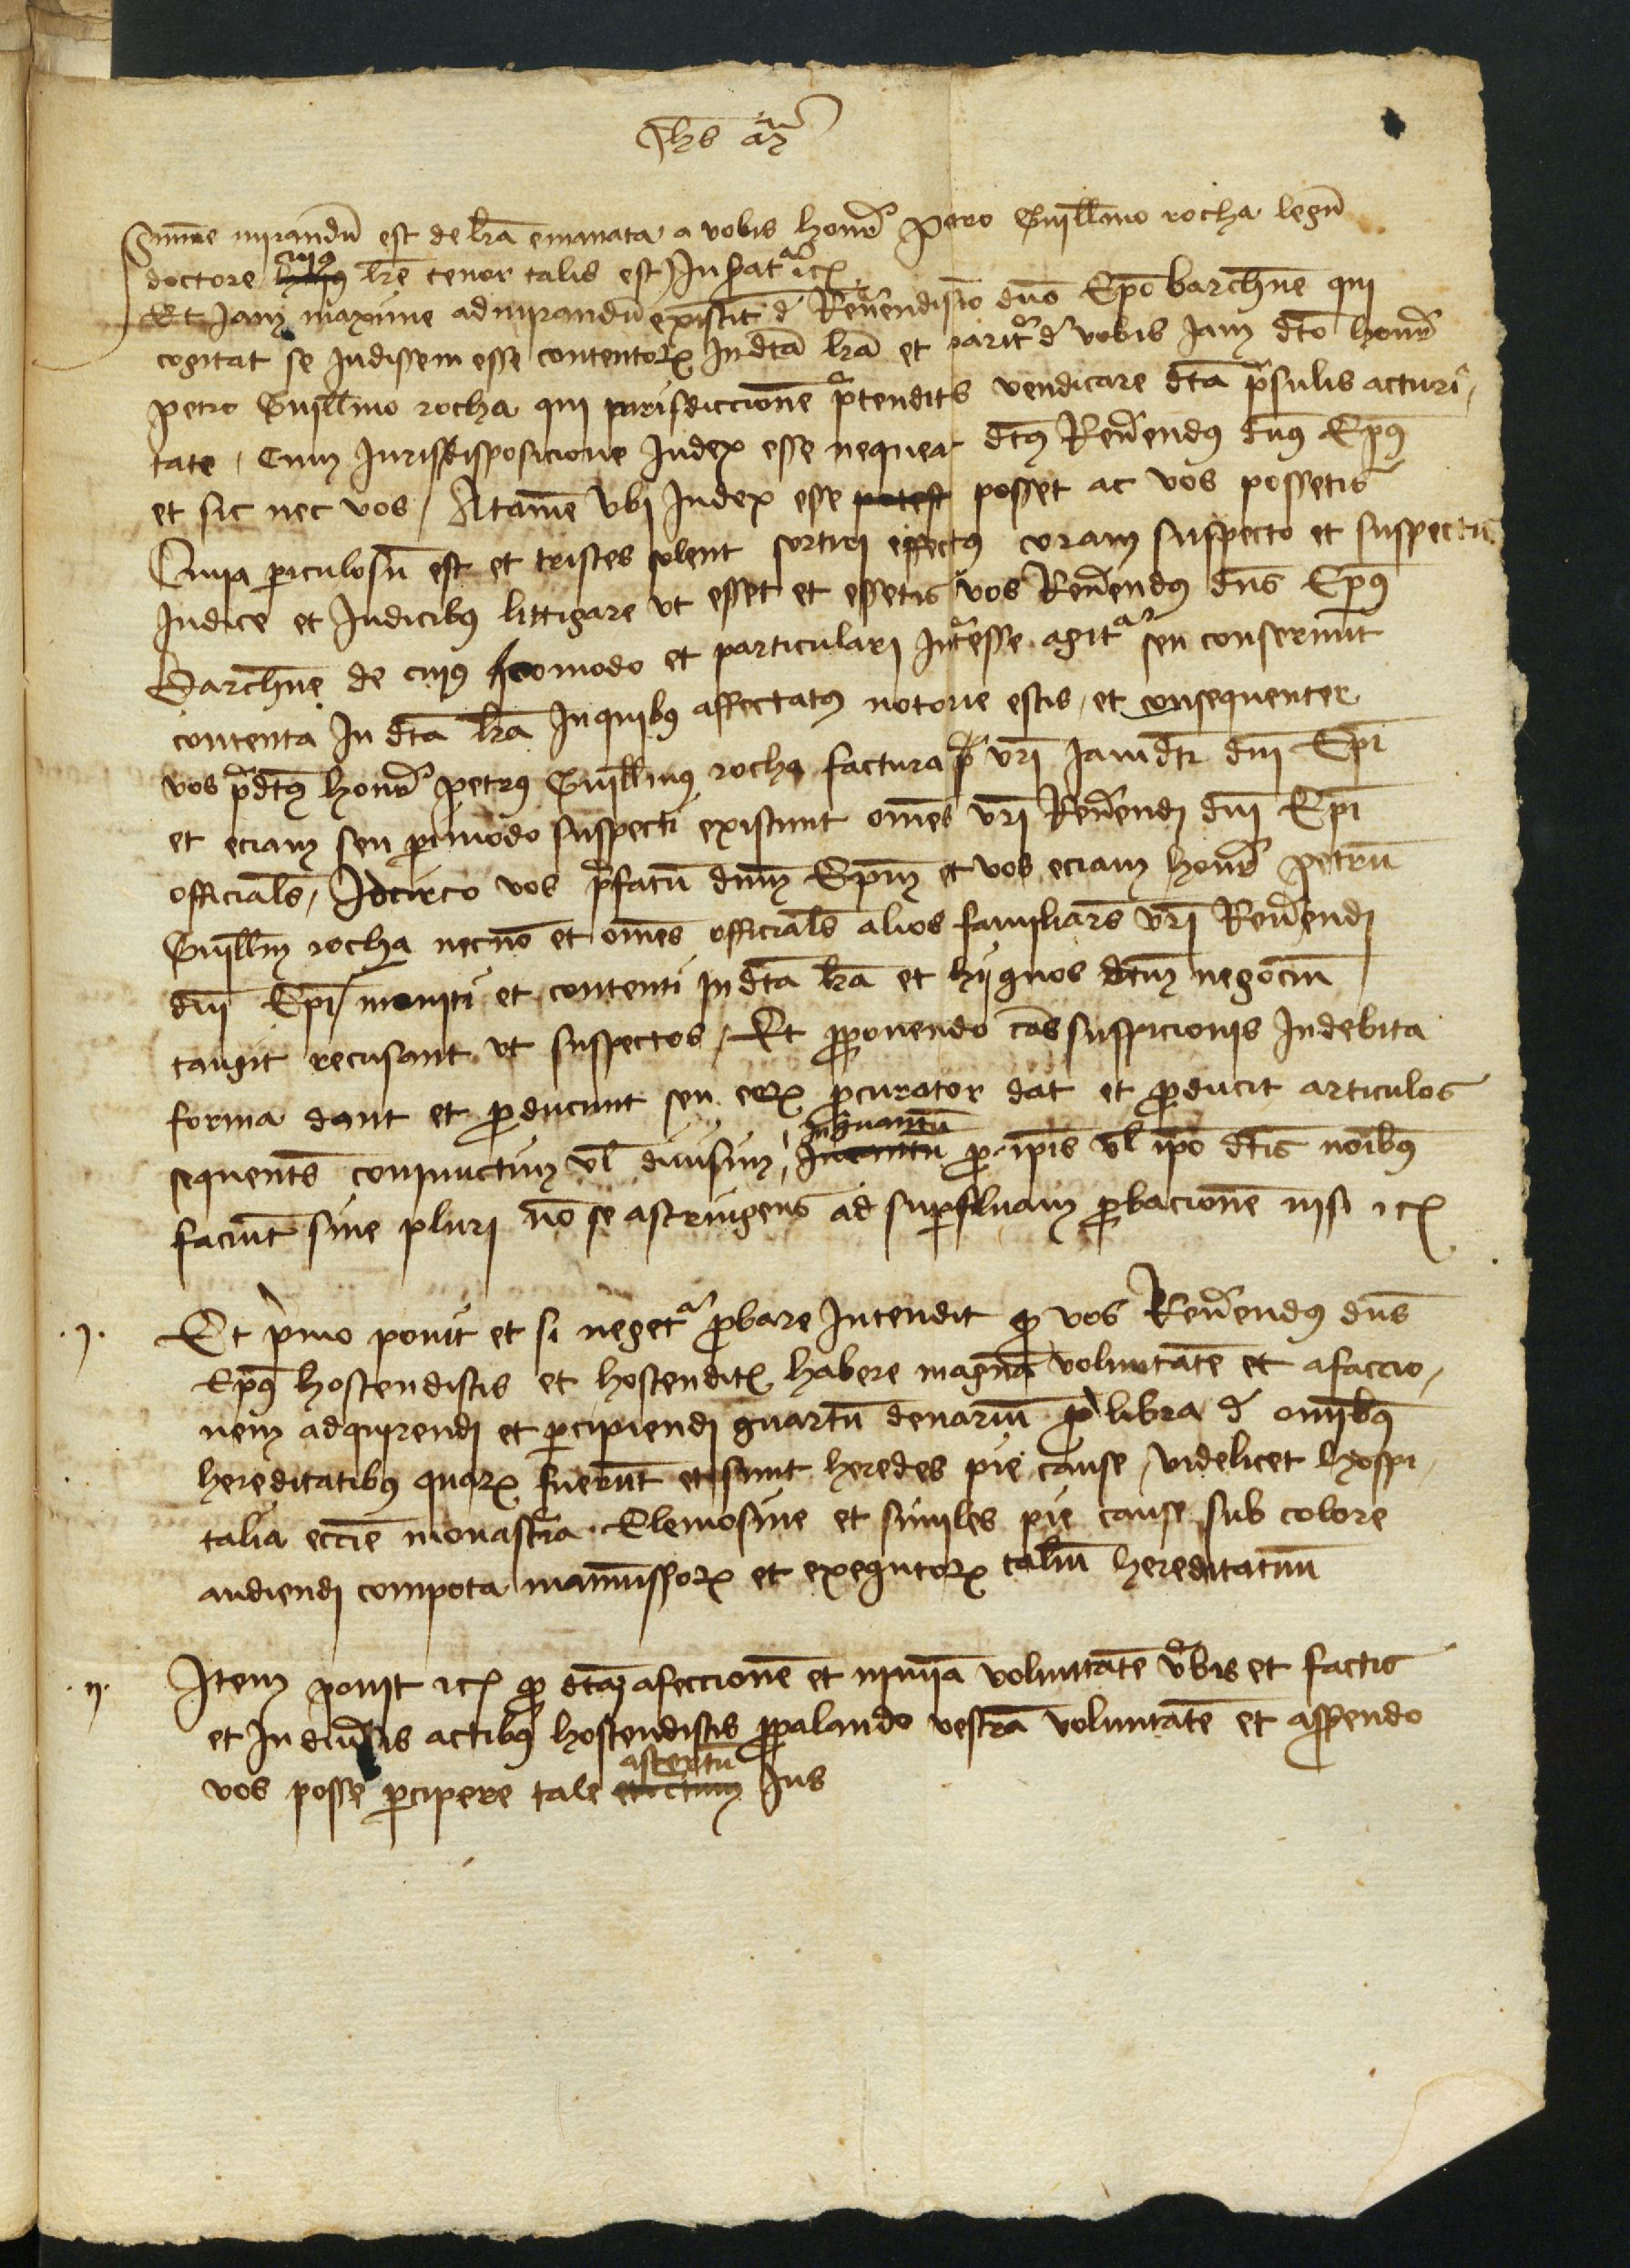 Jhs
Summe mirandu est de lra emanata a vobis honor Petro Guillmo rocha legu
doctore cujus lre tenor talis est Inserat etc
Et jam maxime admirandu existit de Reverendisio dno Epo barchne qui
cogitat se judissem esse contentorum in dta lra et pariter de vobis jam dto honor
petro Guillmo rocha qui jurisdiccione pretenditis vendicare dta presulis acturi
tate / Cum juris disposicione judex esse nequea dtus Reverendus dnus Epus
et sic nec vos / Attame ubi judex esse potest posset ac vos possetis
Quia periculosu est et tristes solent sortiri effectus coram suspecto et suspectis
judice et judicibus littigare ut esset et essetis vos Reverendus dns Epus
Barchne de cujus comodo et particulari interesse agitur seu conserunt
contenta in dta lra in quibus affectatus notorie estis / et consequenter
vos predtus honor petrus Guillmus rocha factura vri jamdti dni Epi
et eciam seu permodo suspecti existunt omes vri Reverendi dni Epi
officials / Idcirco vos prefatu dnum Epum et vos eciam honor petru
Guillm rocha necno et omes officials alios familiars vri Reverendi
dni Epi / moniti et contenti in dta lra et hii quos dtum negociu
tangit recusant ut suspectos / Et proponendo cas suspicionis in debita
forma dant et producunt seu eorum procurator dat et producit articulos
sequents conjunctim vl divisim / inquantu pro ipis vl ipo dtis noibus
faciut sine pluri no se astringens ad superfluam probacione nisi etc
.j. Et primo ponit et si negetur probare intendit quod vos Reverendus dns
Epus hostendistis et hostenditis habere magna voluntate et afaccio
nem adquirendi et percipiendi quartu denariu pro libra de omnibus
hereditatibus quarum fuerut et sunt heredes pie cause / videlicet hospi
talia eccie monasteria Elemosine et similes pie cause sub colore
audiendi compota manumissorum et exegutorum taliu hereditatum
.ij. Item ponit etc quod dtam afeccione et nimia voluntate verbis et factis
et in diversis actibus hostendistis propalando vestra voluntate et asserendo
vos posse percipere tale assertu jus